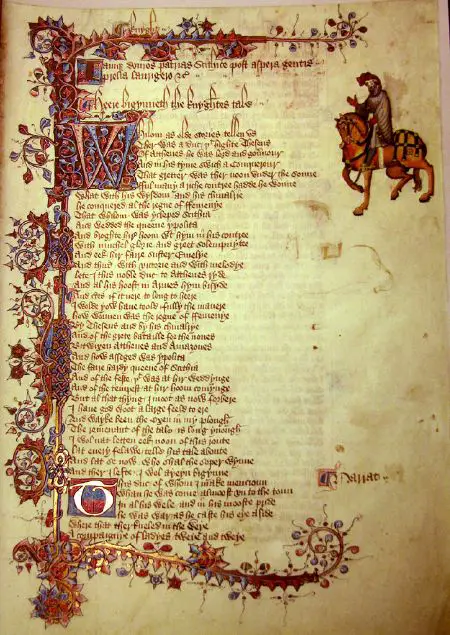 Iamque domos patrias Scithice post aspera gentis
prelia laurigero &c
Heere bigynneth the knyghtes tale
Whilom as olde stories tellen us
Ther was a duc þt highte Theseus
Of Atheneȝ he was lord and gouernour
And in his tyme swich a Conquerour
That gretter was ther noon under the sonne
Ful many a riche contree hadde he wonne
What with his wysdom and his chiualrie
He conquered al the regne of ffemenye
That whilom was ycleped Scithia
And wedded the queene ypolita
And broghte hir hoom wt hym in his contree
With muchel glorie and greet solempnytee
And eek hir faire suster Emelye
And thus with victorie and with melodye
Lete I this noble duc to Atthenes ryde
And al his hoost in Armes hym bisyde
And certes if it nere to long to heere
I wolde yow haue toold fully the manere
How wonnen was the regne of ffemenye
By Theseus and by his chiualrye
And of the grete bataille for the nones
Bitwixen Atthenes and Amazones
And how asseged was ypolita
The faire hardy queene of Scithia
And of the feste þt was at hir weddynge
And of the tempest at hir hoom comynge
But al that thyng I moot as now forbere
I haue god woot a large feeld to ere
And wayke been the Oxen in my plough
The remenant of the tale is long ynough
I wol nat letten eek noon of this route
Lat euery felawe telle his tale aboute
And lat se now who shal the soper wynne
And ther I lefte I wol ayeyn bigynne
This duc of whom I make mencioun
Whan he was come almoost vn to the toun
In al his wele and in his mooste pride
He was war as he caste his eye aside
Where that ther kneled in the weye
A compaignye of ladyes tweye and tweye
Narrat